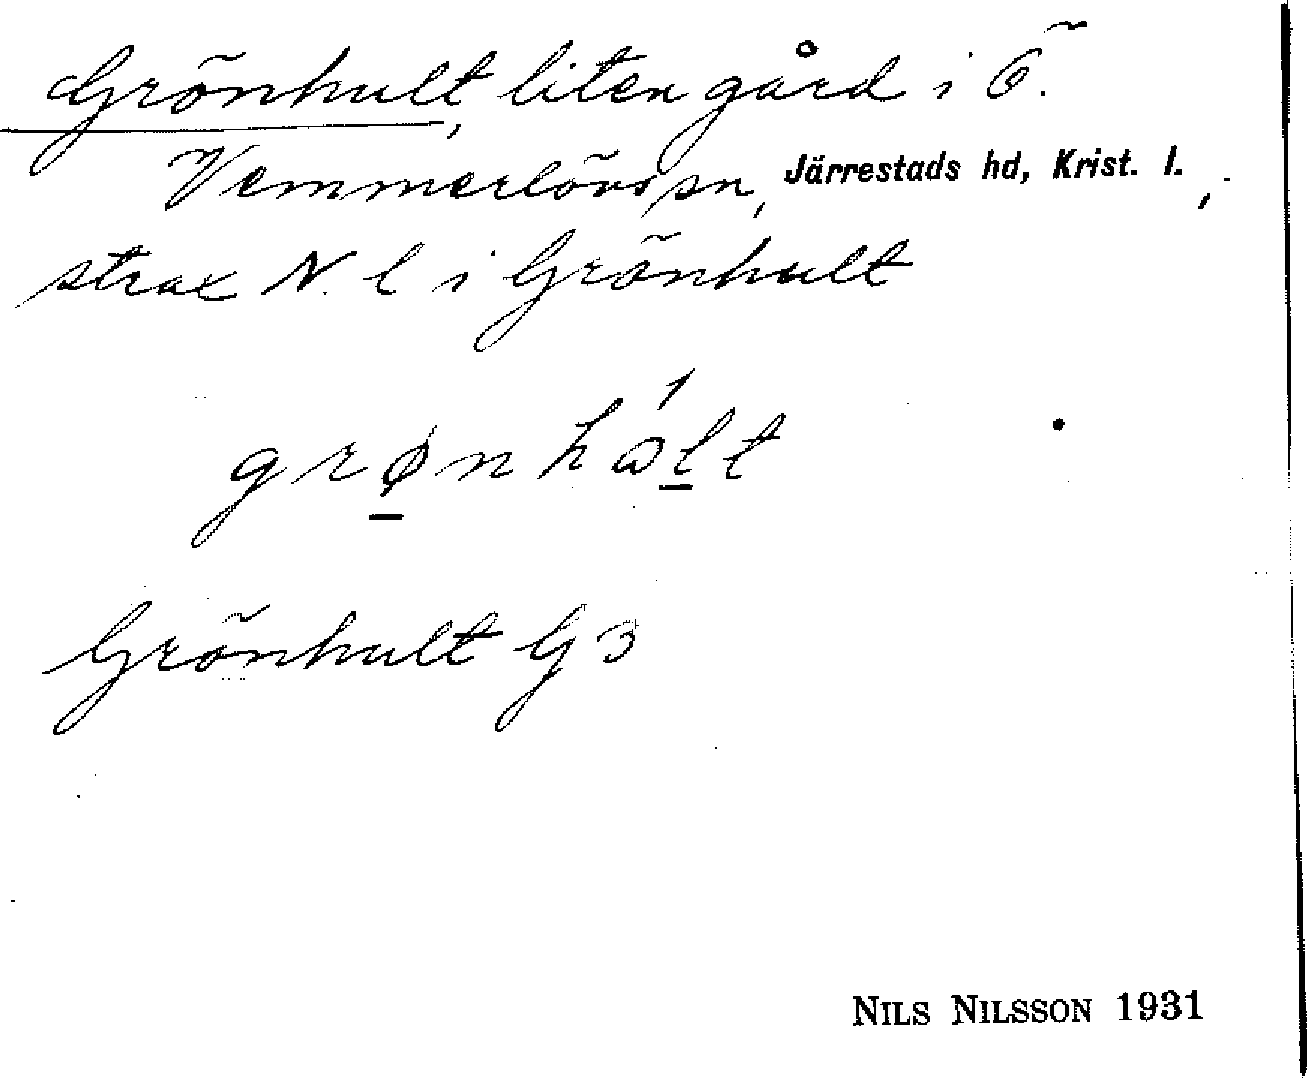 Grönhult, liten gård i Ö.
Vemmerlövs sn, Järrestads hd, Krist. l.,
strax N. l i Grönhult
grønhålt
Grönhult G3
NILS NILSSON 1931